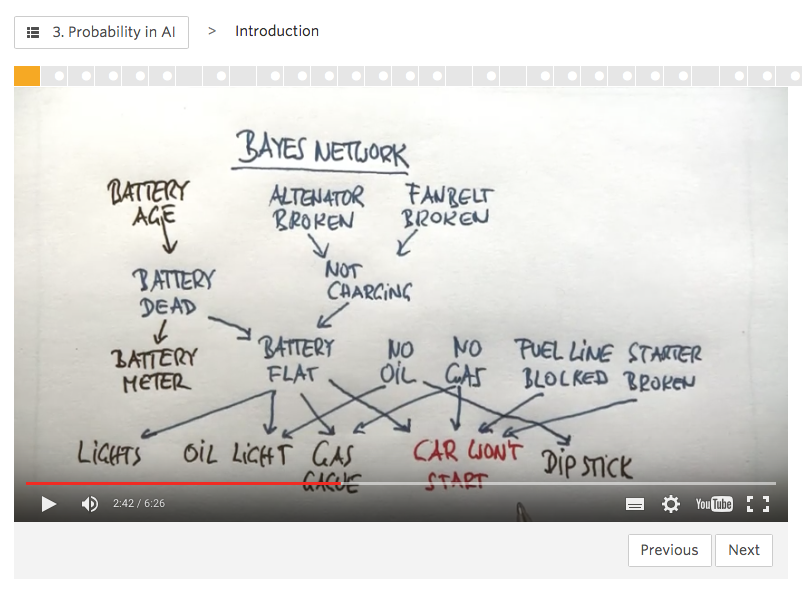 3. Probability in AI > Introduction
BAYES NETWORK
BATTERY
AGE
ALTENATOR
BROKEN
FANBELT
BROKEN
BATTERY
DEAD
NOT
CHARGING
BATTERY
METER
BATTERY
FLAT
NO
OIL
NO
GAS
FUEL LINE
BLOCKED
STARTER
BROKEN
LIGHTS
OIL LIGHT
GAS
GAGUE
CAR WONT
START
DIP STICK
2:42 / 6:26
YouTube
Previous
Next